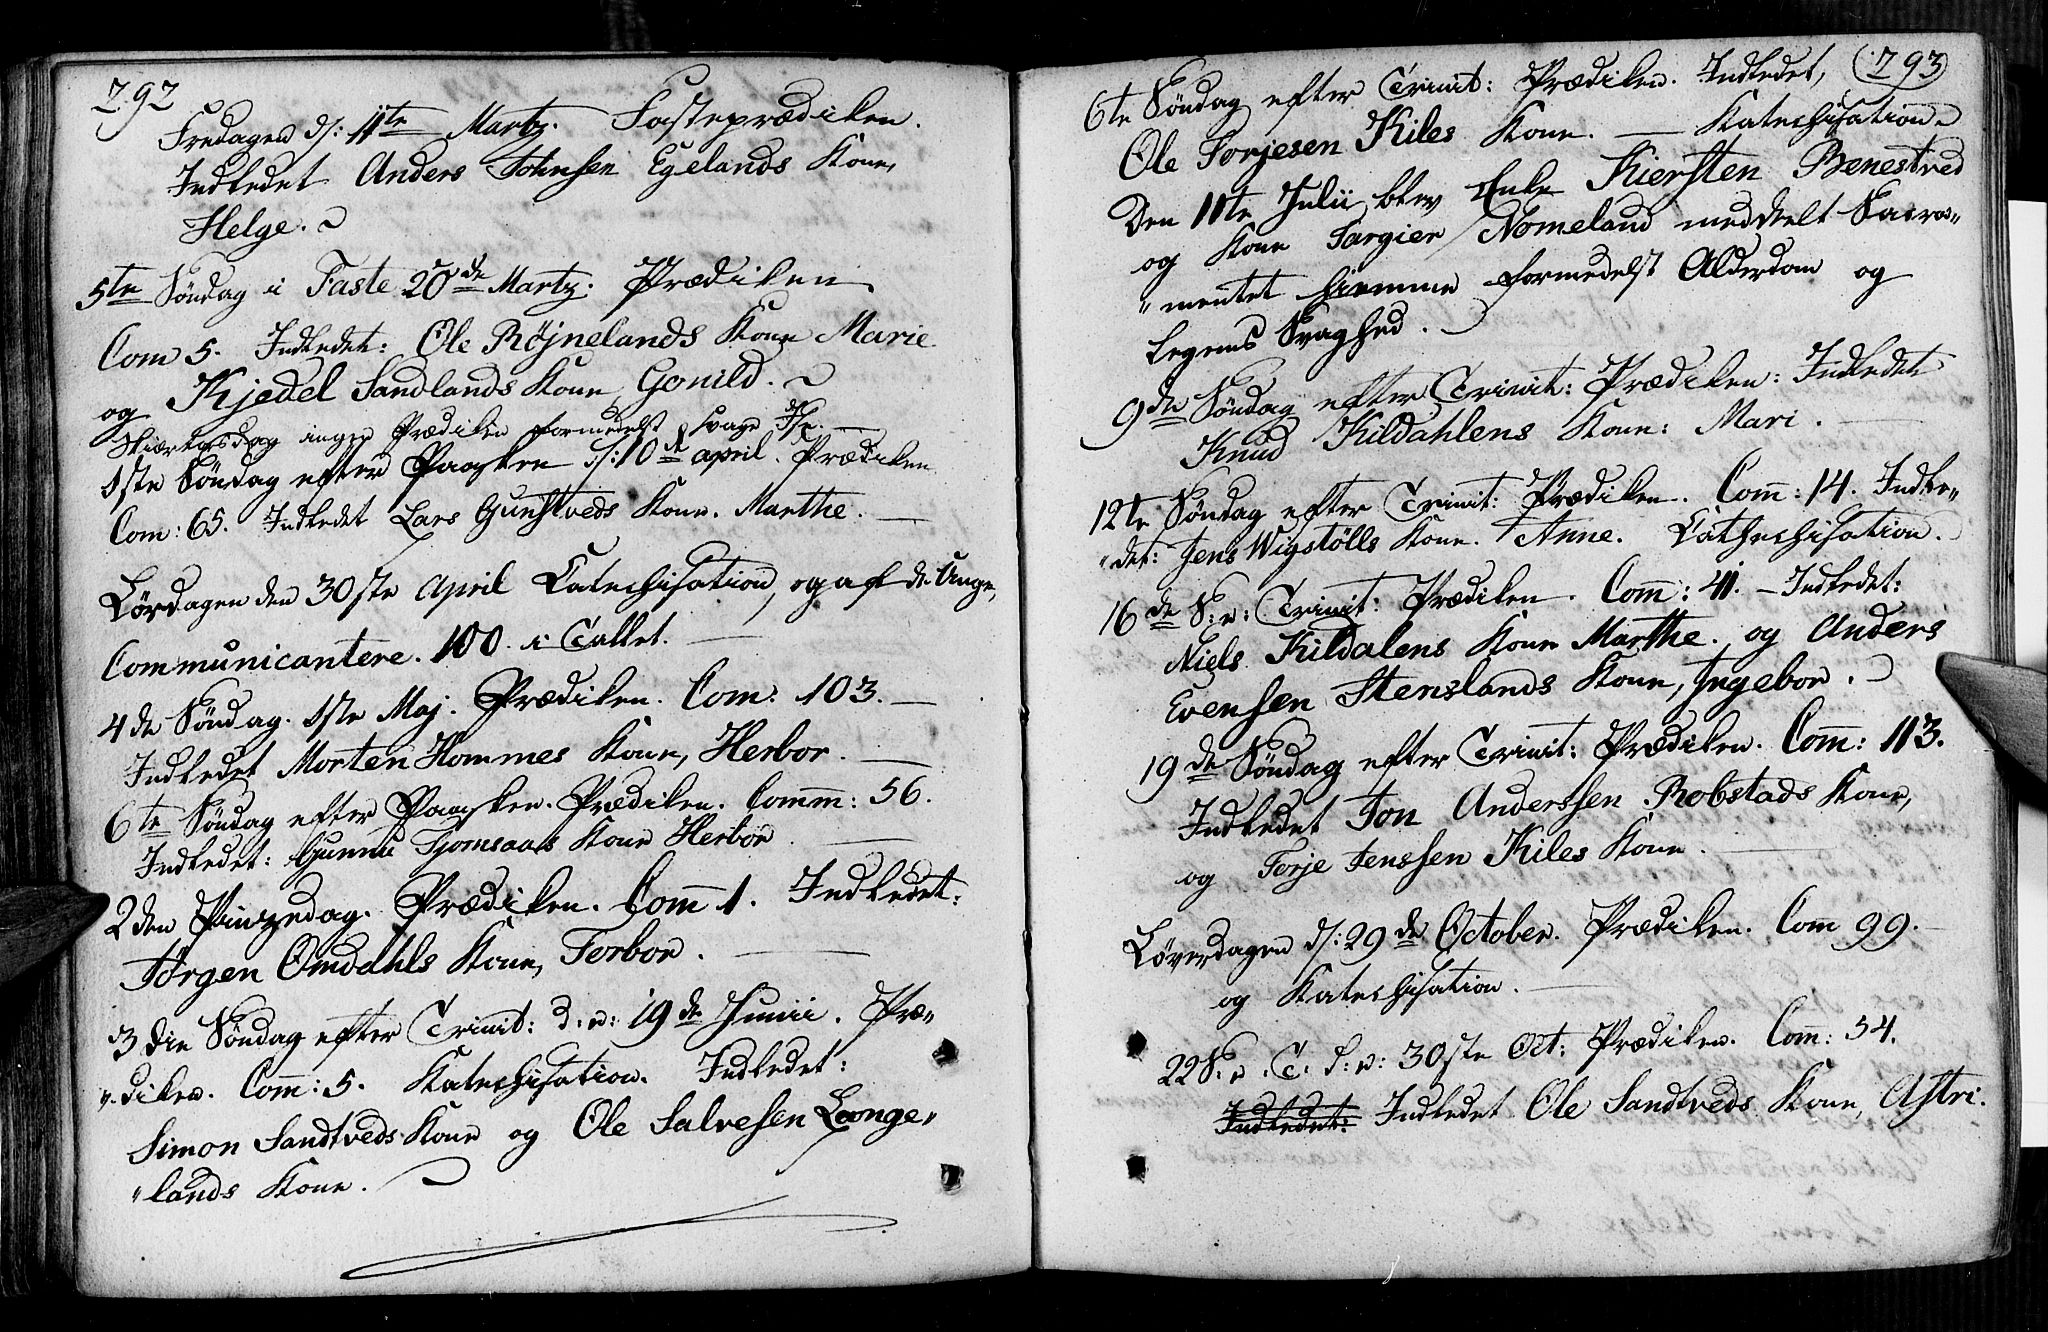 292
Fredagen d: 11te Martz. Fasteprædiken.
Indledet Anders Tohnsen Egelands Kone,
Helge.
5te Søndag i Faste 20de Martz. Prædiken.
Com 5. Indledet: Ole Røjnelands Kone Marie
og Kjedel Sandlands Kone, Gonild.
Skiærtorsdag ingen Prædiken formedelst svage
1ste Søndag efter Paasken d: 10de april. Prædiken.
Com: 65. Indledet Lars Gunstveds Kone. Marthe.
Lørdagen den 30ste April Catechisation, og af de Unge,
Communicantere. 100 i Tallet.
4de Søndag. 1ste Maj. Prædiken. Com: 103.
Indledet Morten Hommes Kone, Herbor.
6te Søndag efter Paasken. Prædiken. Comm: 56.
Indledet: Gunnu Tjomsaas Kone Herbor
2den Pinzedag. Prædiken. Com̄ 1. Indledet:
Jørgen Omdahls Kone, Torbor.
3die Søndag efter Trinit: d. e: 19de Junii. Præ„
„diken. Com̄: 5. Katechisation. Indledet:
Simon Sandtveds Kone og Ole Salvesen Længe„
„lands Kone.
293
6te Søndag efter Trinit: Prædiken. Indledet,
Ole Torjesen Kiles Kone. — Katechisation.
Den 11te Julii blev Enke Kiersten Benestved
og Kone Targier Nomeland meddeelt Sacra„
„mentet hiemme formedelst Alderdom og
Legems Svaghed.
9de Søndag efter Trinit: Prædiken: Indledet
Knud Kildahlens Kone: Mari.
12te Søndag efter Trinit: Prædiken. Com̄: 14. Indle„
„det: Jens Wigstølls Kone. Anne. Cathechisation.
16de S: e: Trinit: Prædiken. Com̄: 41. — Indledet:
Niels Kildalens Kone Marthe. og Anders
Evensen Stenslands Kone, Ingebor.
19de Søndag efter Trinit: Prædiken. Com̄: 113.
Indledet Jon Anderssen Robstads Kone,
og Torje Jenssen Kiles Kone.
Løverdagen d: 29de October. Prædiken. Com̄ 99.
og Katechisation.
22 S. e. T. d: e: 30ste Oct: Prædiken. Com̄: 54.
Indledet: Indledet Ole Sandtveds Kone, Astri.